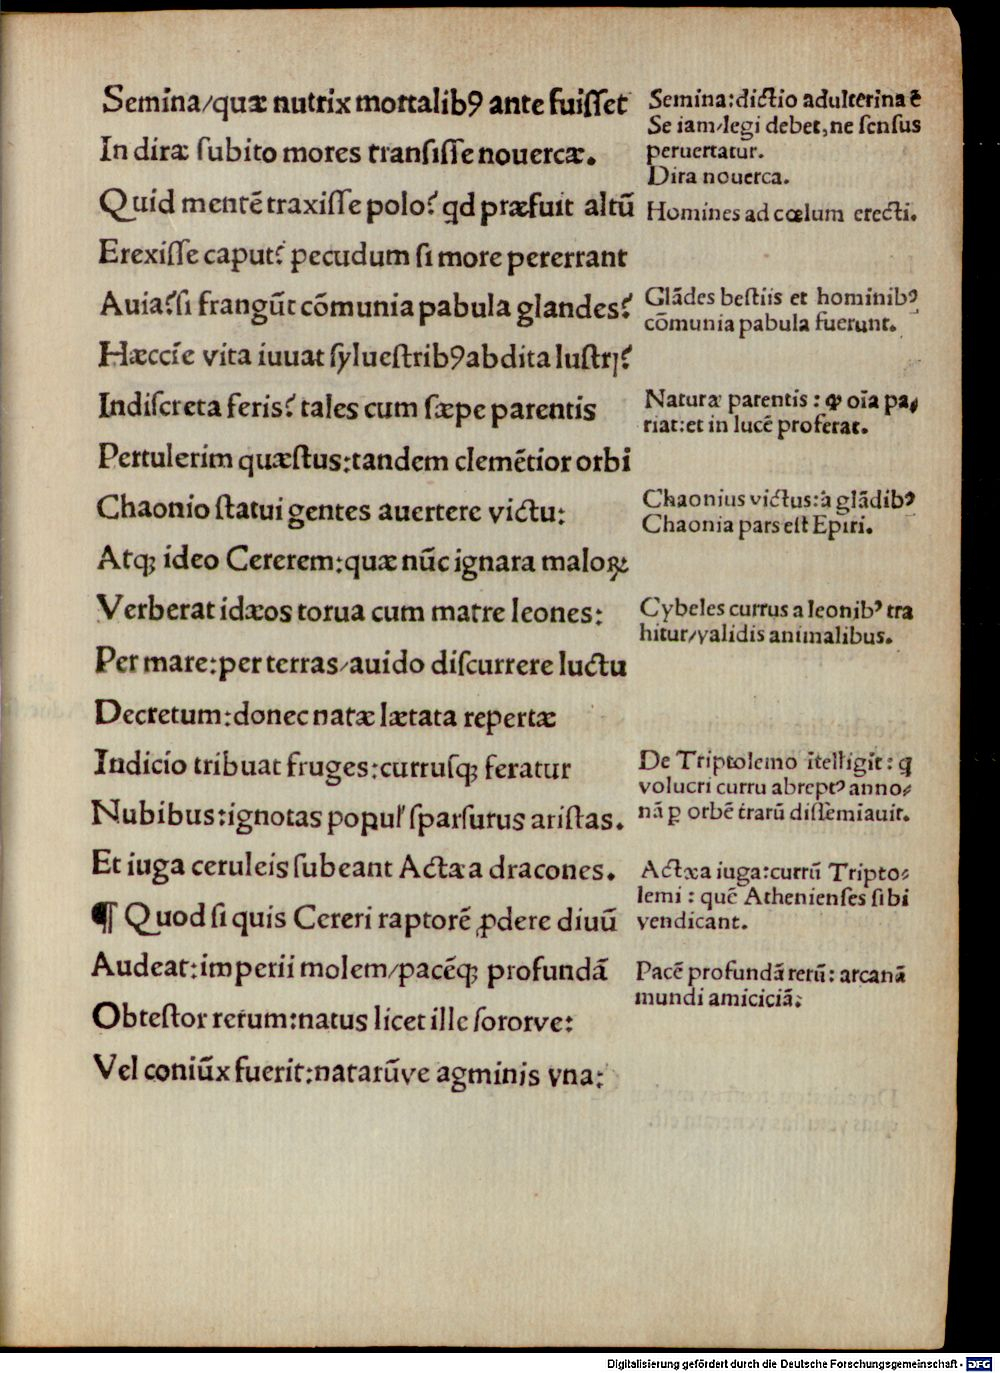 Semina/quæ nutrix mortalibꝰ ante fuiſſet
In diræ ſubito mores tranſiſſe nouercæ.
Quid mentē traxiſſe polo? qd præfuit altū
Erexiſſe caput? pecudum ſi more pererrant
Auia? ſi frangūt cōmunia pabula glandes?
Hæccīe vita iuuat ſylueſtribꝰ abdita luſtrꝭ?
Indiſcreta feris? tales cum ſæpe parentis
Pertulerim quæſtus: tandem clemētior orbi
Chaonio ſtatui gentes auertere victu:
Atqꝫ ideo Cererem: quæ nūc ignara maloꝝ
Verberat idæos torua cum matre leones:
Per mare: per terras/auido diſcurrere luctu
Decretum: donec natæ lætata repertæ
Indicio tribuat fruges: curruſqꝫ feratur
Nubibus: ignotas popul' ſparſurus ariſtas.
Et iuga ceruleis ſubeant Actæa dracones.
¶ Quod ſi quis Cereri raptorē ꝓdere diuū
Audeat: imperii molem/pacēqꝫ profundā
Obteſtor rerum: natus licet ille ſororve:
Vel coniūx fuerit: natarūve agminis vna:
Semina: dictio adulterina ē
Se iam/legi debet, ne ſenſus
peruertatur.
Dira nouerca.
Homines ad cœlum erecti.
Glādes beſtiis et hominibꝰ
cōmunia pabula fuerunt.
Naturæ parentis: ꝙ oīa pa⸗
riat: et in lucē proferat.
Chaonius victus: à glādibꝰ
Chaonia pars eſt Epiri.
Cybeles currus a leonibꝰ tra
hitur/validis animalibus.
De Triptolemo ītelligit: q
volucri curru abreptꝰ anno⸗
nā ꝑ orbē trarū diſſemīauit.
Actæa iuga: currū Tripto⸗
lemi: quē Athenienſes ſibi
vendicant.
Pacē profundā rerū: arcanā
mundi amiciciā:
Digitalisierung gefördert durch die Deutsche Forschungsgemeinschaft - DFG